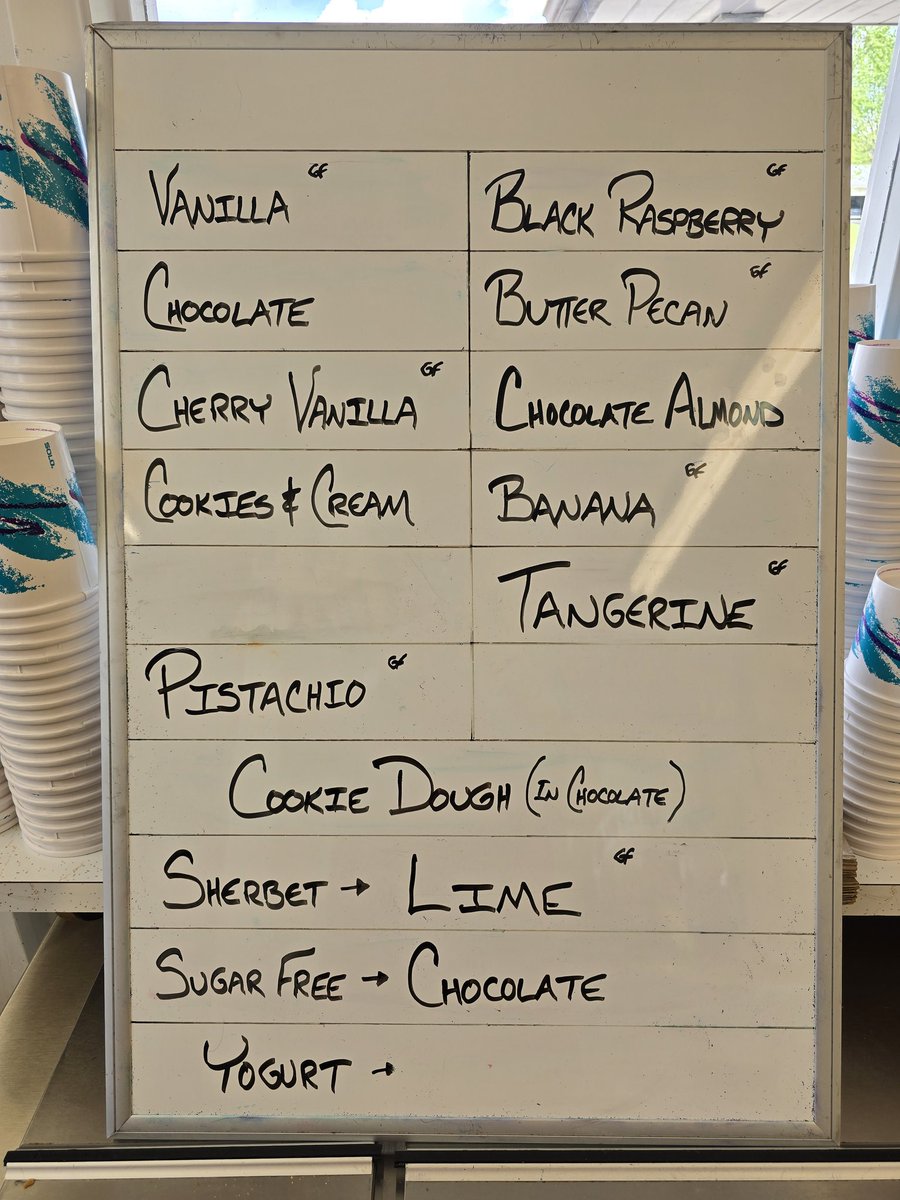 VANILLA GF
BLACK RASPBERRY GF
CHOCOLATE
BUTTER PECAN GF
CHERRY VANILLA GF
CHOCOLATE ALMOND
COOKIES & CREAM
BANANA GF
TANGERINE GF
PISTACHIO GF
COOKIE DOUGH (IN CHOCOLATE)
SHERBET → LIME GF
SUGAR FREE → CHOCOLATE
YOGURT →
SOLO